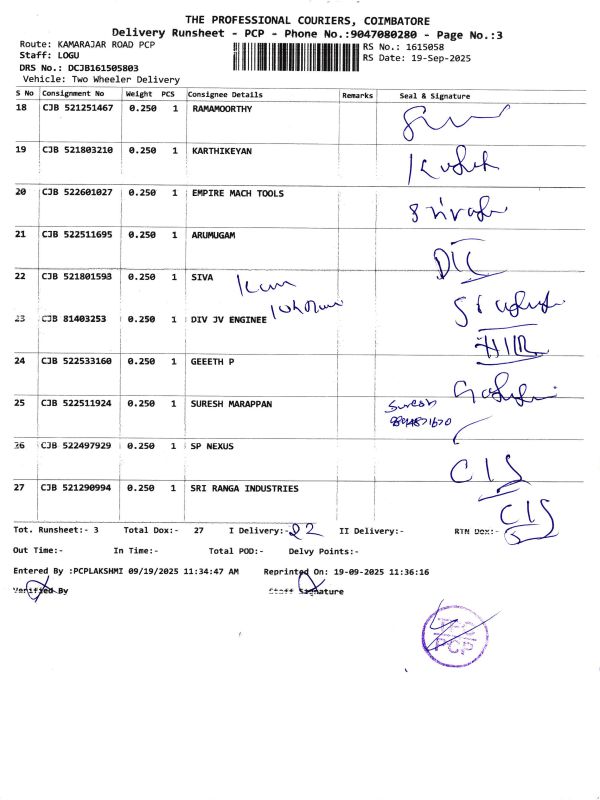 THE PROFESSIONAL COURIERS, COIMBATORE
Delivery Runsheet - PCP - Phone No.:9047080280 - Page No.:3
Route: KAMARAJAR ROAD PCP
RS No.: 1615058
Staff: LOGU
RS Date: 19-Sep-2025
DRS No.: DCJB161505803
Vehicle: Two Wheeler Delivery
S No Consignment No Weight PCS Consignee Details Remarks Seal & Signature
18 CJB 521251467 0.250 1 RAMAMOORTHY
19 CJB 521803210 0.250 1 KARTHIKEYAN
20 CJB 522601027 0.250 1 EMPIRE MACH TOOLS
21 CJB 522511695 0.250 1 ARUMUGAM
22 CJB 521801593 0.250 1 SIVA
23 CJB 81403253 0.250 1 DIV JV ENGINEE
24 CJB 522533160 0.250 1 GEEETH P
25 CJB 522511924 0.250 1 SURESH MARAPPAN Suresh
26 CJB 522497929 0.250 1 SP NEXUS CIS
27 CJB 521290994 0.250 1 SRI RANGA INDUSTRIES CIS
Tot. Runsheet:- 3 Total Dox:- 27 I Delivery:- 22 II Delivery:- RTN Dox:- 5
Out Time:- In Time:- Total POD:- Delvy Points:-
Entered By :PCPLAKSHMI 09/19/2025 11:34:47 AM Reprinted On: 19-09-2025 11:36:16
Verified By Staff Signature
PCP